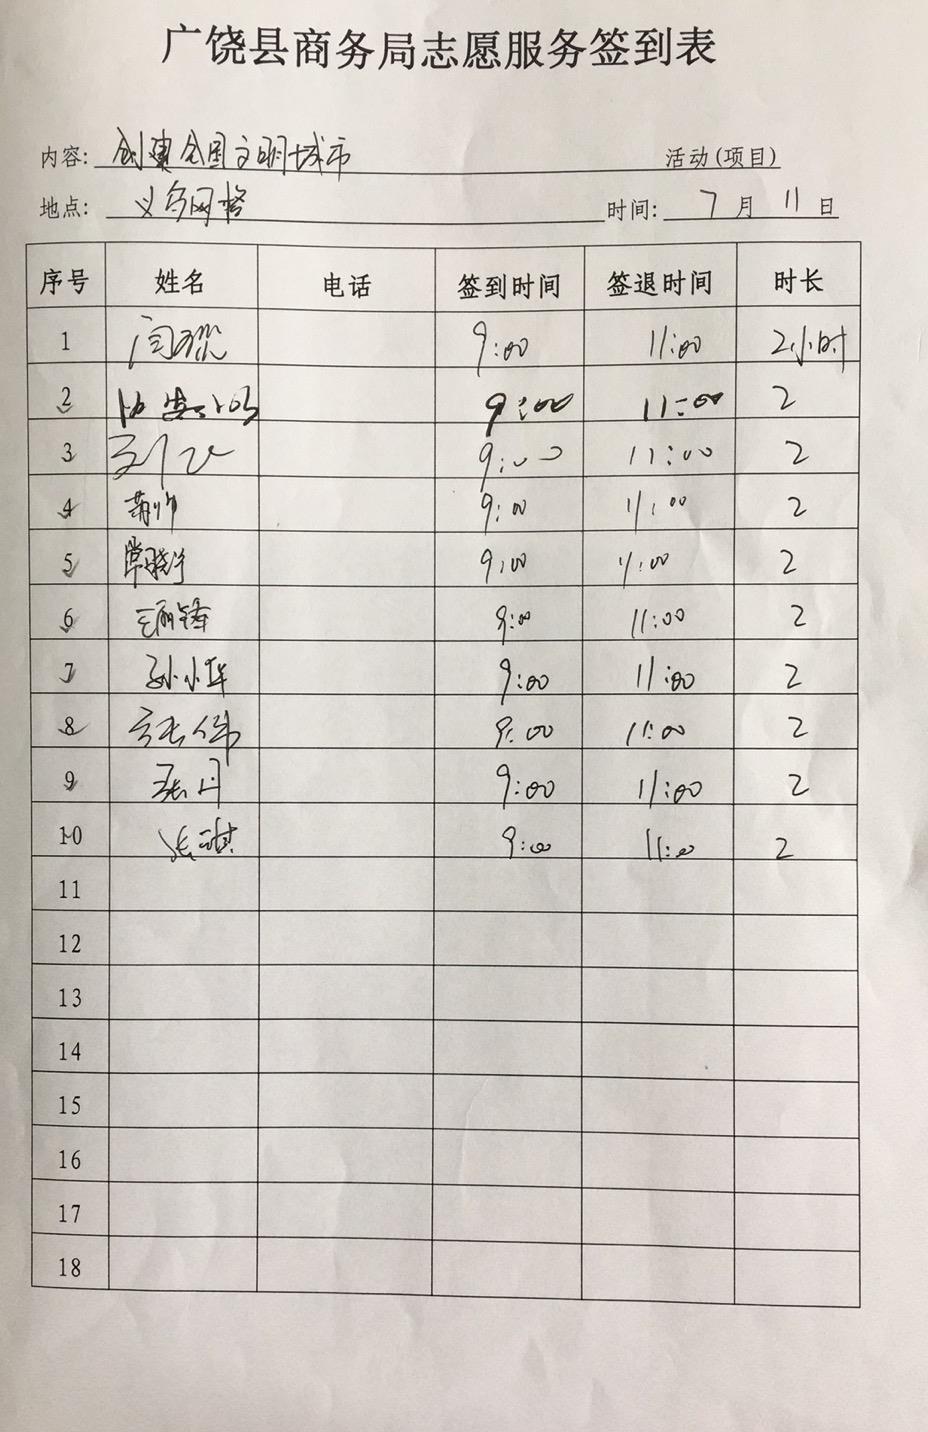 广饶县商务局志愿服务签到表
内容: 创建全国文明城市 活动(项目)
地点: 义乌网格 时间: 7 月 11 日
序号 姓名 电话 签到时间 签退时间 时长
1 闫琛 9:00 11:00 2小时
2 9:00 11:00 2
3 9:00 11:00 2
4 荆帅 9:00 11:00 2
5 常晓宇 9:00 11:00 2
6 王丽锋 9:00 11:00 2
7 孙小华 9:00 11:00 2
8 9:00 11:00 2
9 张月 9:00 11:00 2
10 9:00 11:00 2
11
12
13
14
15
16
17
18